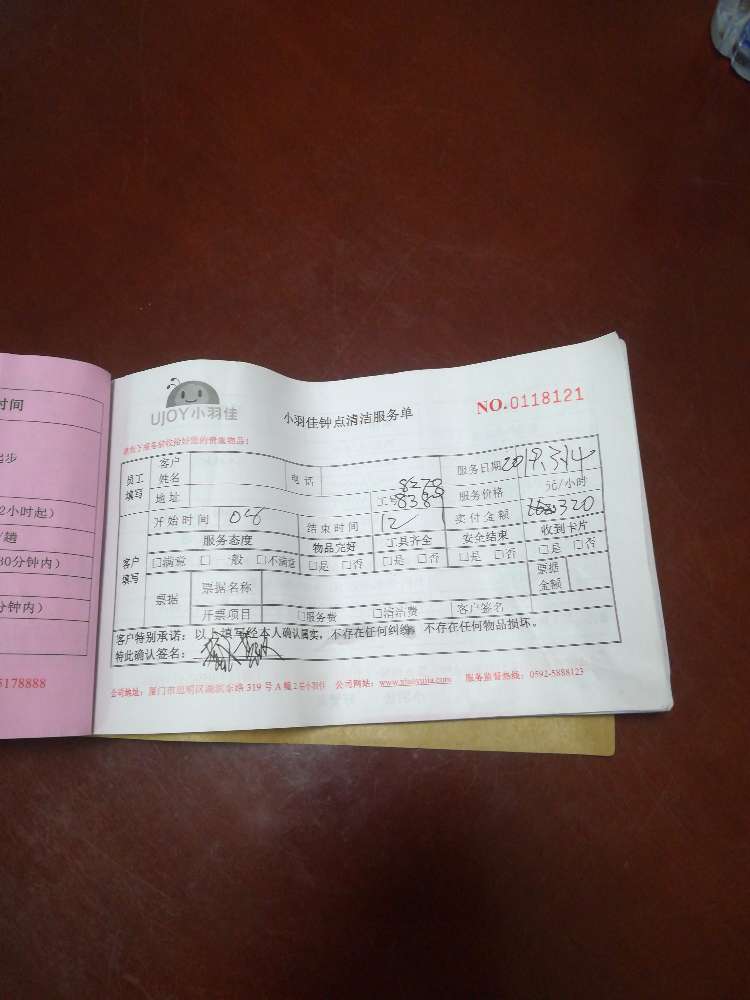 UJOY小羽佳
小羽佳钟点清洁服务单
NO.0118121
员工填写
客户姓名
电话
服务日期 2019.3.14
地址
工号 8270 8380
服务价格
/小时
开始时间 08
结束时间 12
实付金额 320
客户填写
服务态度
物品完好
工具齐全
安全结束
收到卡片
□满意 □一般 □不满意
□是 □否
□是 □否
□是 □否
□是 □否
票据
票据名称
票据金额
开票项目
□服务费
□清洁费
客户签名
客户特别承诺：以上填写经本人确认属实，不存在任何纠纷，不存在任何物品损坏。
特此确认签名：
公司地址：厦门市思明区湖滨东路319号A幢2楼小羽佳 公司网站：www.xiaoyujia.com 服务监督热线：0592-5888123
时间
起步
2小时起）
/趟
30分钟内）
分钟内）
5178888